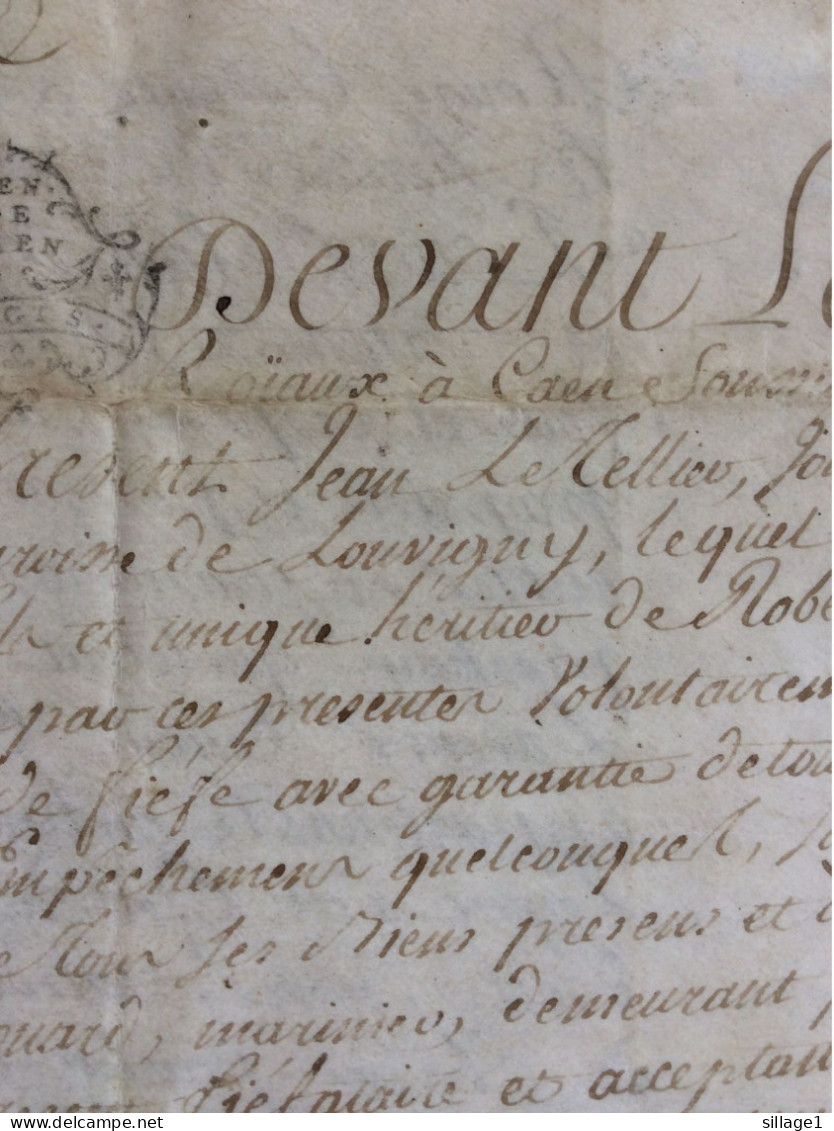 EN
DE
EN
Devant
Roïaux à Caen
Jean Le Tellier,
de Louvigny, lequel
et unique héritier de Robe
par ces presentes Volontairem
de fiéfe avec garantie de tou
Empêchemens quelconques,
Tous ses Biens presens et
ouard, marinier, demeurant
fiéfataire et acceptan
delcampe.net
sillage1